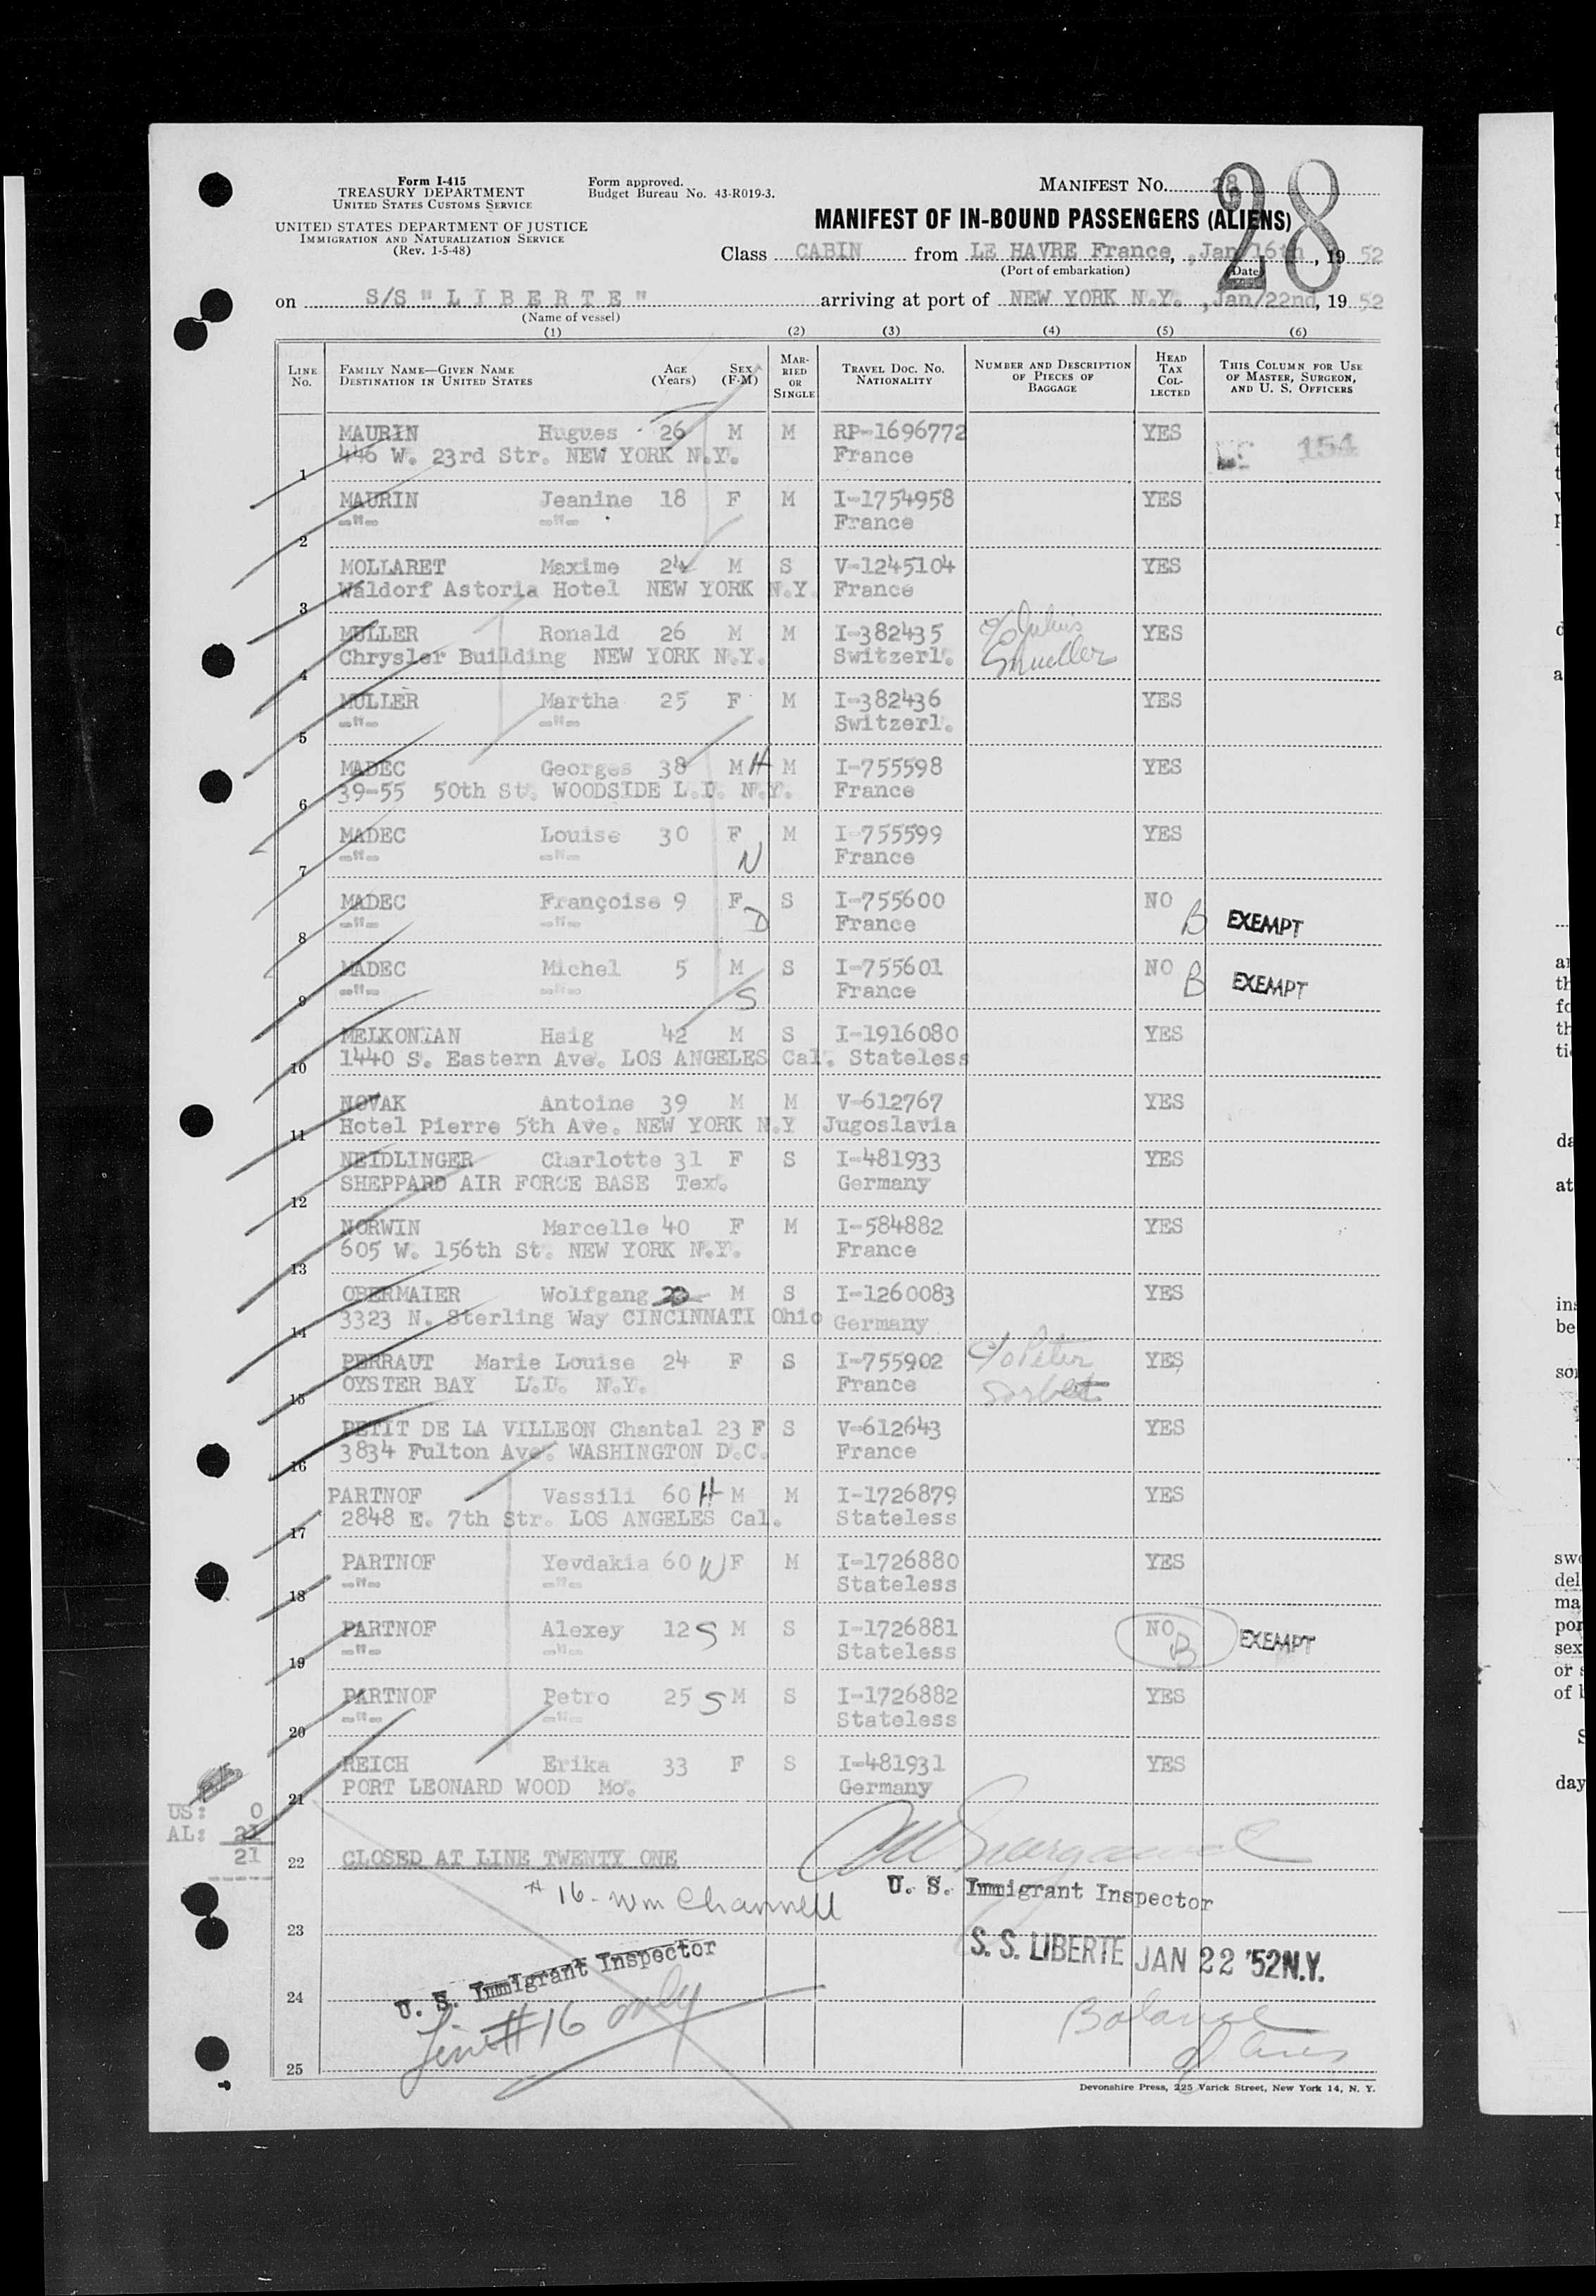 Form I-415
TREASURY DEPARTMENT
UNITED STATES CUSTOMS SERVICE
UNITED STATES DEPARTMENT OF JUSTICE
IMMIGRATION AND NATURALIZATION SERVICE
(Rev. 1-5-48)
Form approved.
Budget Bureau No. 43-R019-3.
MANIFEST NO. 28
28
MANIFEST OF IN-BOUND PASSENGERS (ALIENS)
Class CABIN from LE HAVRE France, , Jan/16th, 19 52
(Port of embarkation) (Date)
on S/S "LIBERTE" arriving at port of NEW YORK N.Y. , Jan/22nd, 19 52
(Name of vessel)
(1) (2) (3) (4) (5) (6)
LINE NO. FAMILY NAME—GIVEN NAME DESTINATION IN UNITED STATES AGE (Years) SEX (F-M) MARRIED OR SINGLE TRAVEL DOC. NO. NATIONALITY NUMBER AND DESCRIPTION OF PIECES OF BAGGAGE HEAD TAX COLLECTED THIS COLUMN FOR USE OF MASTER, SURGEON, AND U. S. OFFICERS
MAURIN Hugues 26 M M RP-1696772 YES 154
1 446 W. 23rd Str. NEW YORK N.Y. France
MAURIN Jeanine 18 F M I-1754958 YES
2 -"- -"- France
MOLLARET Maxime 24 M S V-1245104 YES
3 Waldorf Astoria Hotel NEW YORK N.Y. France
MULLER Ronald 26 M M I-382435 c/o Julius YES
4 Chrysler Building NEW YORK N.Y. Switzerl. Smueller
MULLER Martha 25 F M I-382436 YES
5 -"- -"- Switzerl.
MADEC Georges 38 M H M I-755598 YES
6 39-55 50th St. WOODSIDE L.I. N.Y. France
MADEC Louise 30 F M I-755599 YES
7 -"- -"- W France
MADEC Françoise 9 F S I-755600 NO
8 -"- -"- D France B EXEMPT
MADEC Michel 5 M S I-755601 NO
9 -"- -"- S France B EXEMPT
MELKONIAN Haig 42 M S I-1916080 YES
10 1440 S. Eastern Ave. LOS ANGELES Cal. Stateless
NOVAK Antoine 39 M M V-612767 YES
11 Hotel Pierre 5th Ave. NEW YORK N.Y Jugoslavia
NEIDLINGER Charlotte 31 F S I-481933 YES
12 SHEPPARD AIR FORCE BASE Tex. Germany
NORWIN Marcelle 40 F M I-584882 YES
13 605 W. 156th St. NEW YORK N.Y. France
OBERMAIER Wolfgang 20 M S I-1260083 YES
14 3323 N. Sterling Way CINCINNATI Ohio Germany
PERRAUT Marie Louise 24 F S I-755902 c/o Peter YES
15 OYSTER BAY L.I. N.Y. France Sorbet
PETIT DE LA VILLEON Chantal 23 F S V-612643 YES
16 3834 Fulton Ave. WASHINGTON D.C. France
PARTNOF Vassili 60 H M M I-1726879 YES
17 2848 E. 7th Str. LOS ANGELES Cal. Stateless
PARTNOF Yevdakia 60 W F M I-1726880 YES
18 -"- -"- Stateless
PARTNOF Alexey 12 S M S I-1726881 NO
19 -"- -"- Stateless B EXEMPT
PARTNOF Petro 25 S M S I-1726882 YES
20 -"- -"- Stateless
REICH Erika 33 F S I-481931 YES
21 PORT LEONARD WOOD Mo. Germany
US: 0
AL: 21
21
22 CLOSED AT LINE TWENTY ONE
U. S. Immigrant Inspector
# 16 - Wm Channell
23
S. S. LIBERTE JAN 22 '52 N.Y.
U. S. Immigrant Inspector
24
Line #16 only
Balance
25
Devonshire Press, 225 Varick Street, New York 14, N. Y.